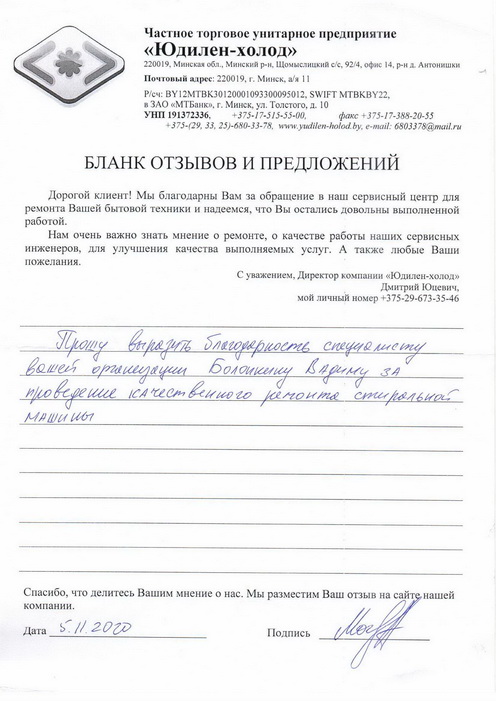 Частное торговое унитарное предприятие
«Юдилен-холод»
220019, Минская обл., Минский р-н, Щомыслицкий с/с, 92/4, офис 14, р-н д. Антонишки
Почтовый адрес: 220019, г. Минск, а/я 11
Р/сч: BY12MTBK30120001093300095012, SWIFT MTBKBY22,
в ЗАО «МТБанк», г. Минск, ул. Толстого, д. 10
УНП 191372336, +375-17-515-55-00, факс +375-17-388-20-55
+375-(29, 33, 25)-680-33-78, www.yudilen-holod.by, e-mail: 6803378@mail.ru
БЛАНК ОТЗЫВОВ И ПРЕДЛОЖЕНИЙ
Дорогой клиент! Мы благодарны Вам за обращение в наш сервисный центр для
ремонта Вашей бытовой техники и надеемся, что Вы остались довольны выполненной
работой.
Нам очень важно знать мнение о ремонте, о качестве работы наших сервисных
инженеров, для улучшения качества выполняемых услуг. А также любые Ваши
пожелания.
С уважением, Директор компании «Юдилен-холод»
Дмитрий Юцевич,
мой личный номер +375-29-673-35-46
Прошу выразить благодарность специалисту
вашей организации Вадиму за
проведение качественного ремонта стиральной
машины
Спасибо, что делитесь Вашим мнение о нас. Мы разместим Ваш отзыв на сайте нашей
компании.
Дата 5.11.2020 Подпись